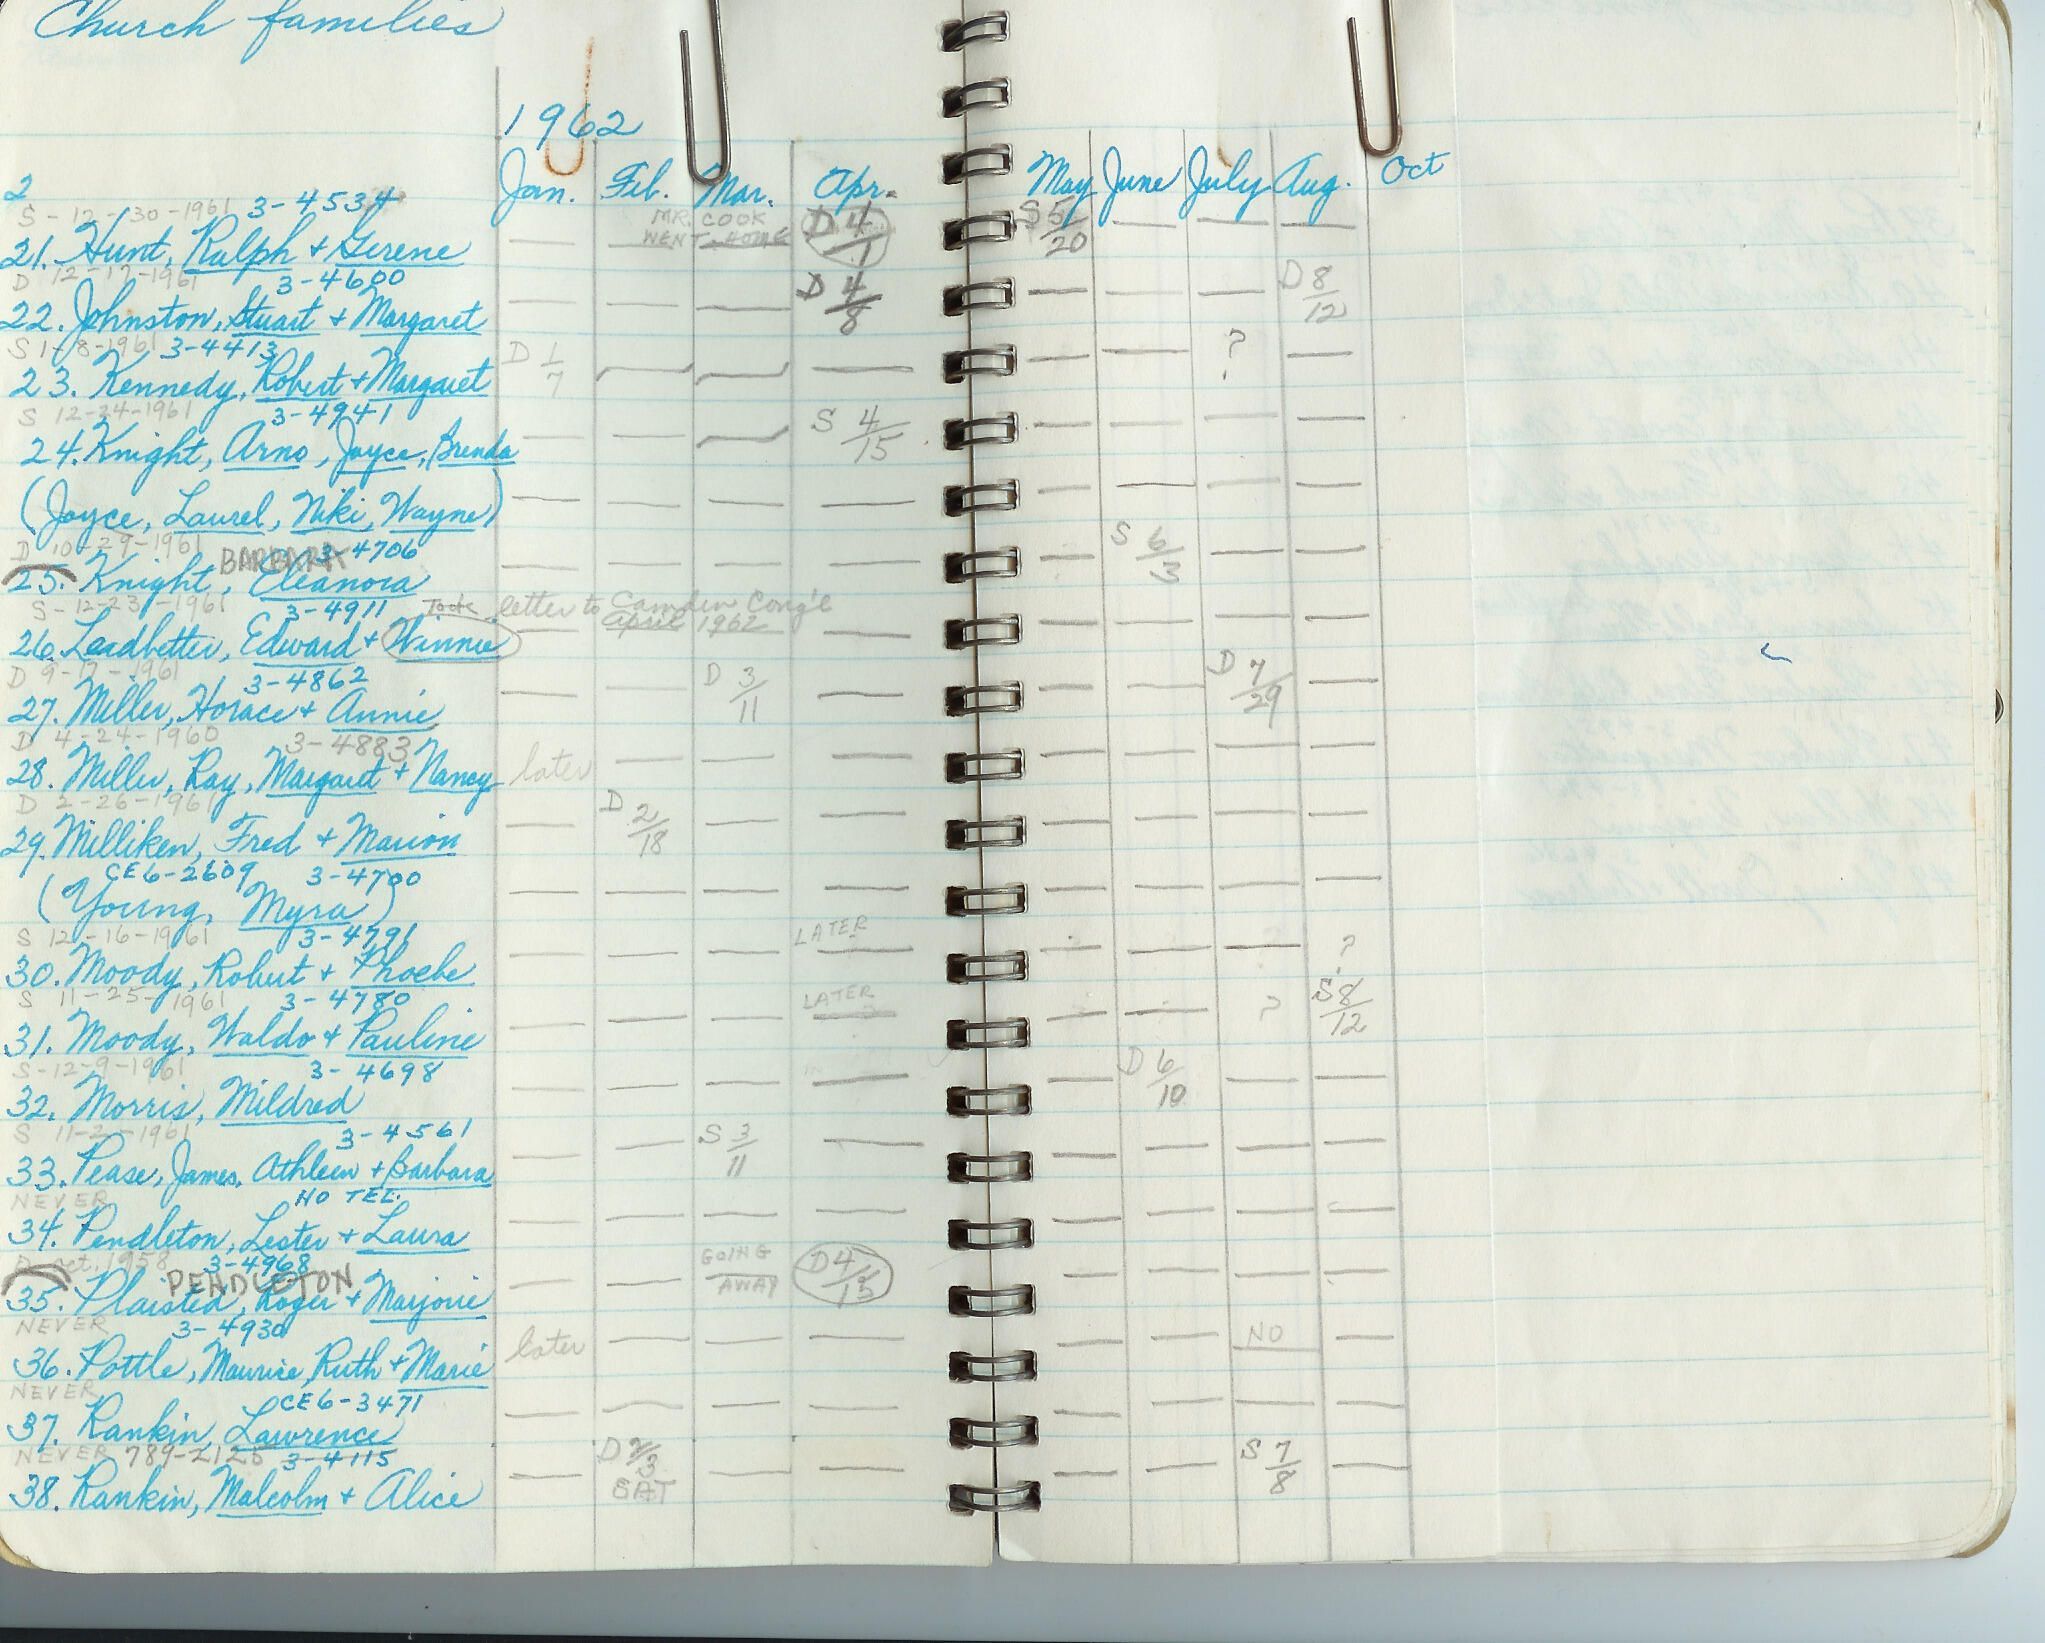 Church families
1962
Jan. Feb. Mar. Apr. May June July Aug. Oct
2
S-12-30-1961 3-4534 MR. COOK D 4/1 S 5/20
WENT HOME
21. Hunt, Ralph + Serene
D 12-17-1961 3-4600 D 4/8 D 8/12
22. Johnston, Stuart + Margaret
S 1-8-1961 3-4413 D 1/7 ?
23. Kennedy, Robert + Margaret
S 12-24-1961 3-4941 S 4/15
24. Knight, Arno, Joyce, Brenda
(Joyce, Laurel, Niki, Wayne)
D 10-29-1961 BARBARA 3-4706 S 6/3
25. Knight, Eleanora
S-12-23-1961 3-4911 Took letter to Camden Cong'l
April 1962
26. Leadbetter, Edward + Winnie
D 9-17-1961 3-4862 D 3/11 D 7/29
27. Miller, Horace + Annie
D 4-24-1960 3-4883
28. Miller, Ray, Margaret + Nancy later
D 2-26-1961 D 2/18
29. Milliken, Fred + Marion
CE6-2609 3-4700
(Young, Myra)
S 12-16-1961 3-4791 LATER ?
30. Moody, Robert + Phoebe
S 11-25-1961 3-4780 LATER ? S 8/12
31. Moody, Waldo + Pauline
S-12-9-1961 3-4698 D 6/10
32. Morris, Mildred
S 11-2-1961 3-4561 S 3/11
33. Pease, James, Athleen + Barbara
NEVER NO TEL.
34. Pendleton, Lester + Laura
D Oct. 1958 3-4968 GOING AWAY D 4/15
PENDLETON
35. Plaisted, Roger + Marjorie
NEVER 3-4930
36. Pottle, Maurice, Ruth + Marie later NO
NEVER CE6-3471
37. Rankin, Lawrence
NEVER 789-2125 3-4115 D 2/3 SAT S 7/8
38. Rankin, Malcolm + Alice